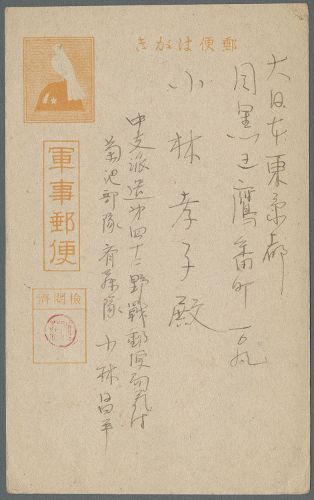 郵便はがき
軍事郵便
検閲済
大日本東京都
目黒区鷹番町一〇九
小林孝子殿
中支派遣第四十二野戦郵便局気付
菊池部隊斉藤隊 小林昌平